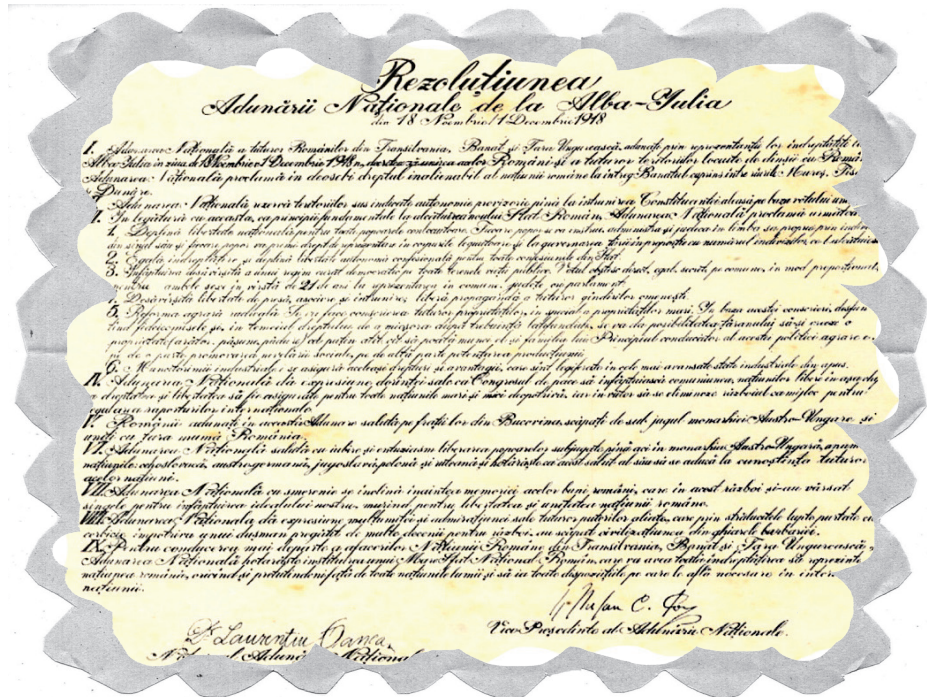 Rezoluțiunea
Adunării Naționale de la Alba-Iulia
din 18 Noembrie/1 Decembrie 1918
I. Adunarea Națională a tuturor Românilor din Transilvania, Banat și Țara Ungurească, adunați prin reprezentanții lor îndreptățiți la
Alba-Iulia în ziua de 18 Noembrie/1 Decembrie 1918, decretează unirea acelor Români și a tuturor teritoriilor locuite de dînșii cu România.
Adunarea Națională proclamă în deosebi dreptul inalienabil al națiunii române la întreg Banatul cuprins între rîurile Mureș, Tisa
și Dunăre.
Adunarea Națională rezervă teritoriilor sus indicate autonomie provizorie pînă la întrunirea Constituantei aleasă pe baza votului
În legătură cu aceasta, ca principii fundamentale la alcătuirea noului Stat Român, Adunarea Națională proclamă
1. Deplină libertate națională pentru toate popoarele conlocuitoare. Fiecare popor se va instrui, administra și judeca în limba sa proprie prin
din sînul său și fiecare popor va primi drept de reprezentare în corpurile legiuitoare și la guvernarea țării în proporție cu numărul indivizilor ce-l alcătuiesc
2. Egală îndreptățire și deplină libertate autonomă confesională pentru toate confesiunile din Stat.
3. Înfăptuirea desăvîrșită a unui regim curat democratic pe toate terenele vieții publice. Votul obștesc, direct, egal, secret, pe comune, în mod proporțional,
pentru ambele sexe în vîrstă de 21 de ani la reprezentarea în comune, județe ori parlament.
4. Desăvîrșită libertate de presă, asociere și întrunire; liberă propagandă a tuturor gîndirilor omenești.
5. Reforma agrară radicală. Se va face conscrierea tuturor proprietăților, în special a proprietăților mari. În baza acestei conscrieri, desființînd
fideicomisele și, în temeiul dreptului de a micșora după trebuință latifundiile, se va da posibilitatea țăranului să-și creeze o
proprietate (arător, pășune, pădure) cel puțin atît cît să poată munci el și familia lui. Principiul conducător al acestei politici agrare e
pe de o parte promovarea nivelării sociale, pe de altă parte potențarea producțiunii.
6. Muncitorimii industriale i se asigură aceleași drepturi și avantagii, care sînt legiferate în cele mai avansate state industriale din apus.
IV. Adunarea Națională dă expresiune dorinței sale ca Congresul de pace să înfăptuiască comuniunea națiunilor libere în așa chip
ca dreptatea și libertatea să fie asigurate pentru toate națiunile mari și mici deopotrivă, iar în viitor să se elimineze războiul ca mijloc pentru
regularea raporturilor internaționale.
V. Românii adunați în această Adunare salută pe frații lor din Bucovina, scăpați de sub jugul monarhiei Austro-Ungare și
uniți cu țara mamă România.
VI. Adunarea Națională salută cu iubire și entuziasm liberarea popoarelor subjugate pînă aci în monarhia Austro-Ungară, anume
națiunile: cehoslovacă, austrogermană, jugoslavă, polonă și ruteană și hotărăște ca acest salut al său să se aducă la cunoștința tuturor
acelor națiuni.
VII. Adunarea Națională cu smerenie se închină înaintea memoriei acelor bravi români, care în acest război și-au vărsat
sîngele pentru înfăptuirea idealului nostru, murind pentru libertatea și unitatea națiunii române.
VIII. Adunarea Națională dă expresiune mulțumitei și admirațiunei sale tuturor puterilor aliate, care prin strălucitele lupte purtate cu
cerbicie împotriva unui dușman pregătit de multe decenii pentru război, au scăpat civilizațiunea din ghiarele barbariei.
IX. Pentru conducerea mai departe a afacerilor Națiunii Române din Transilvania, Banat și Țara Ungurească,
Adunarea Națională hotărăște instituirea unui Mare Sfat Național Român, care va avea toată îndreptățirea să reprezinte
națiunea română, oricînd și pretutindeni față de toate națiunile lumii și să ia toate dispozițiile pe care le află necesare în interesul
națiunii.
Vice-Președinte al Adunării Naționale.
Dr Laurențiu Oanea,
Adunării Naționale